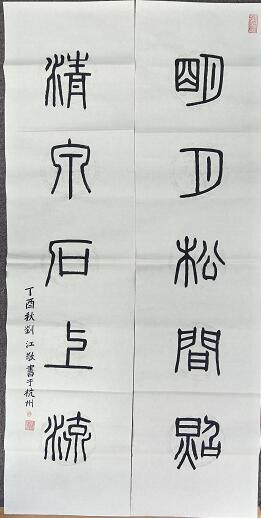 明月松間照
清泉石上流
丁酉秋劉江敬書于杭州